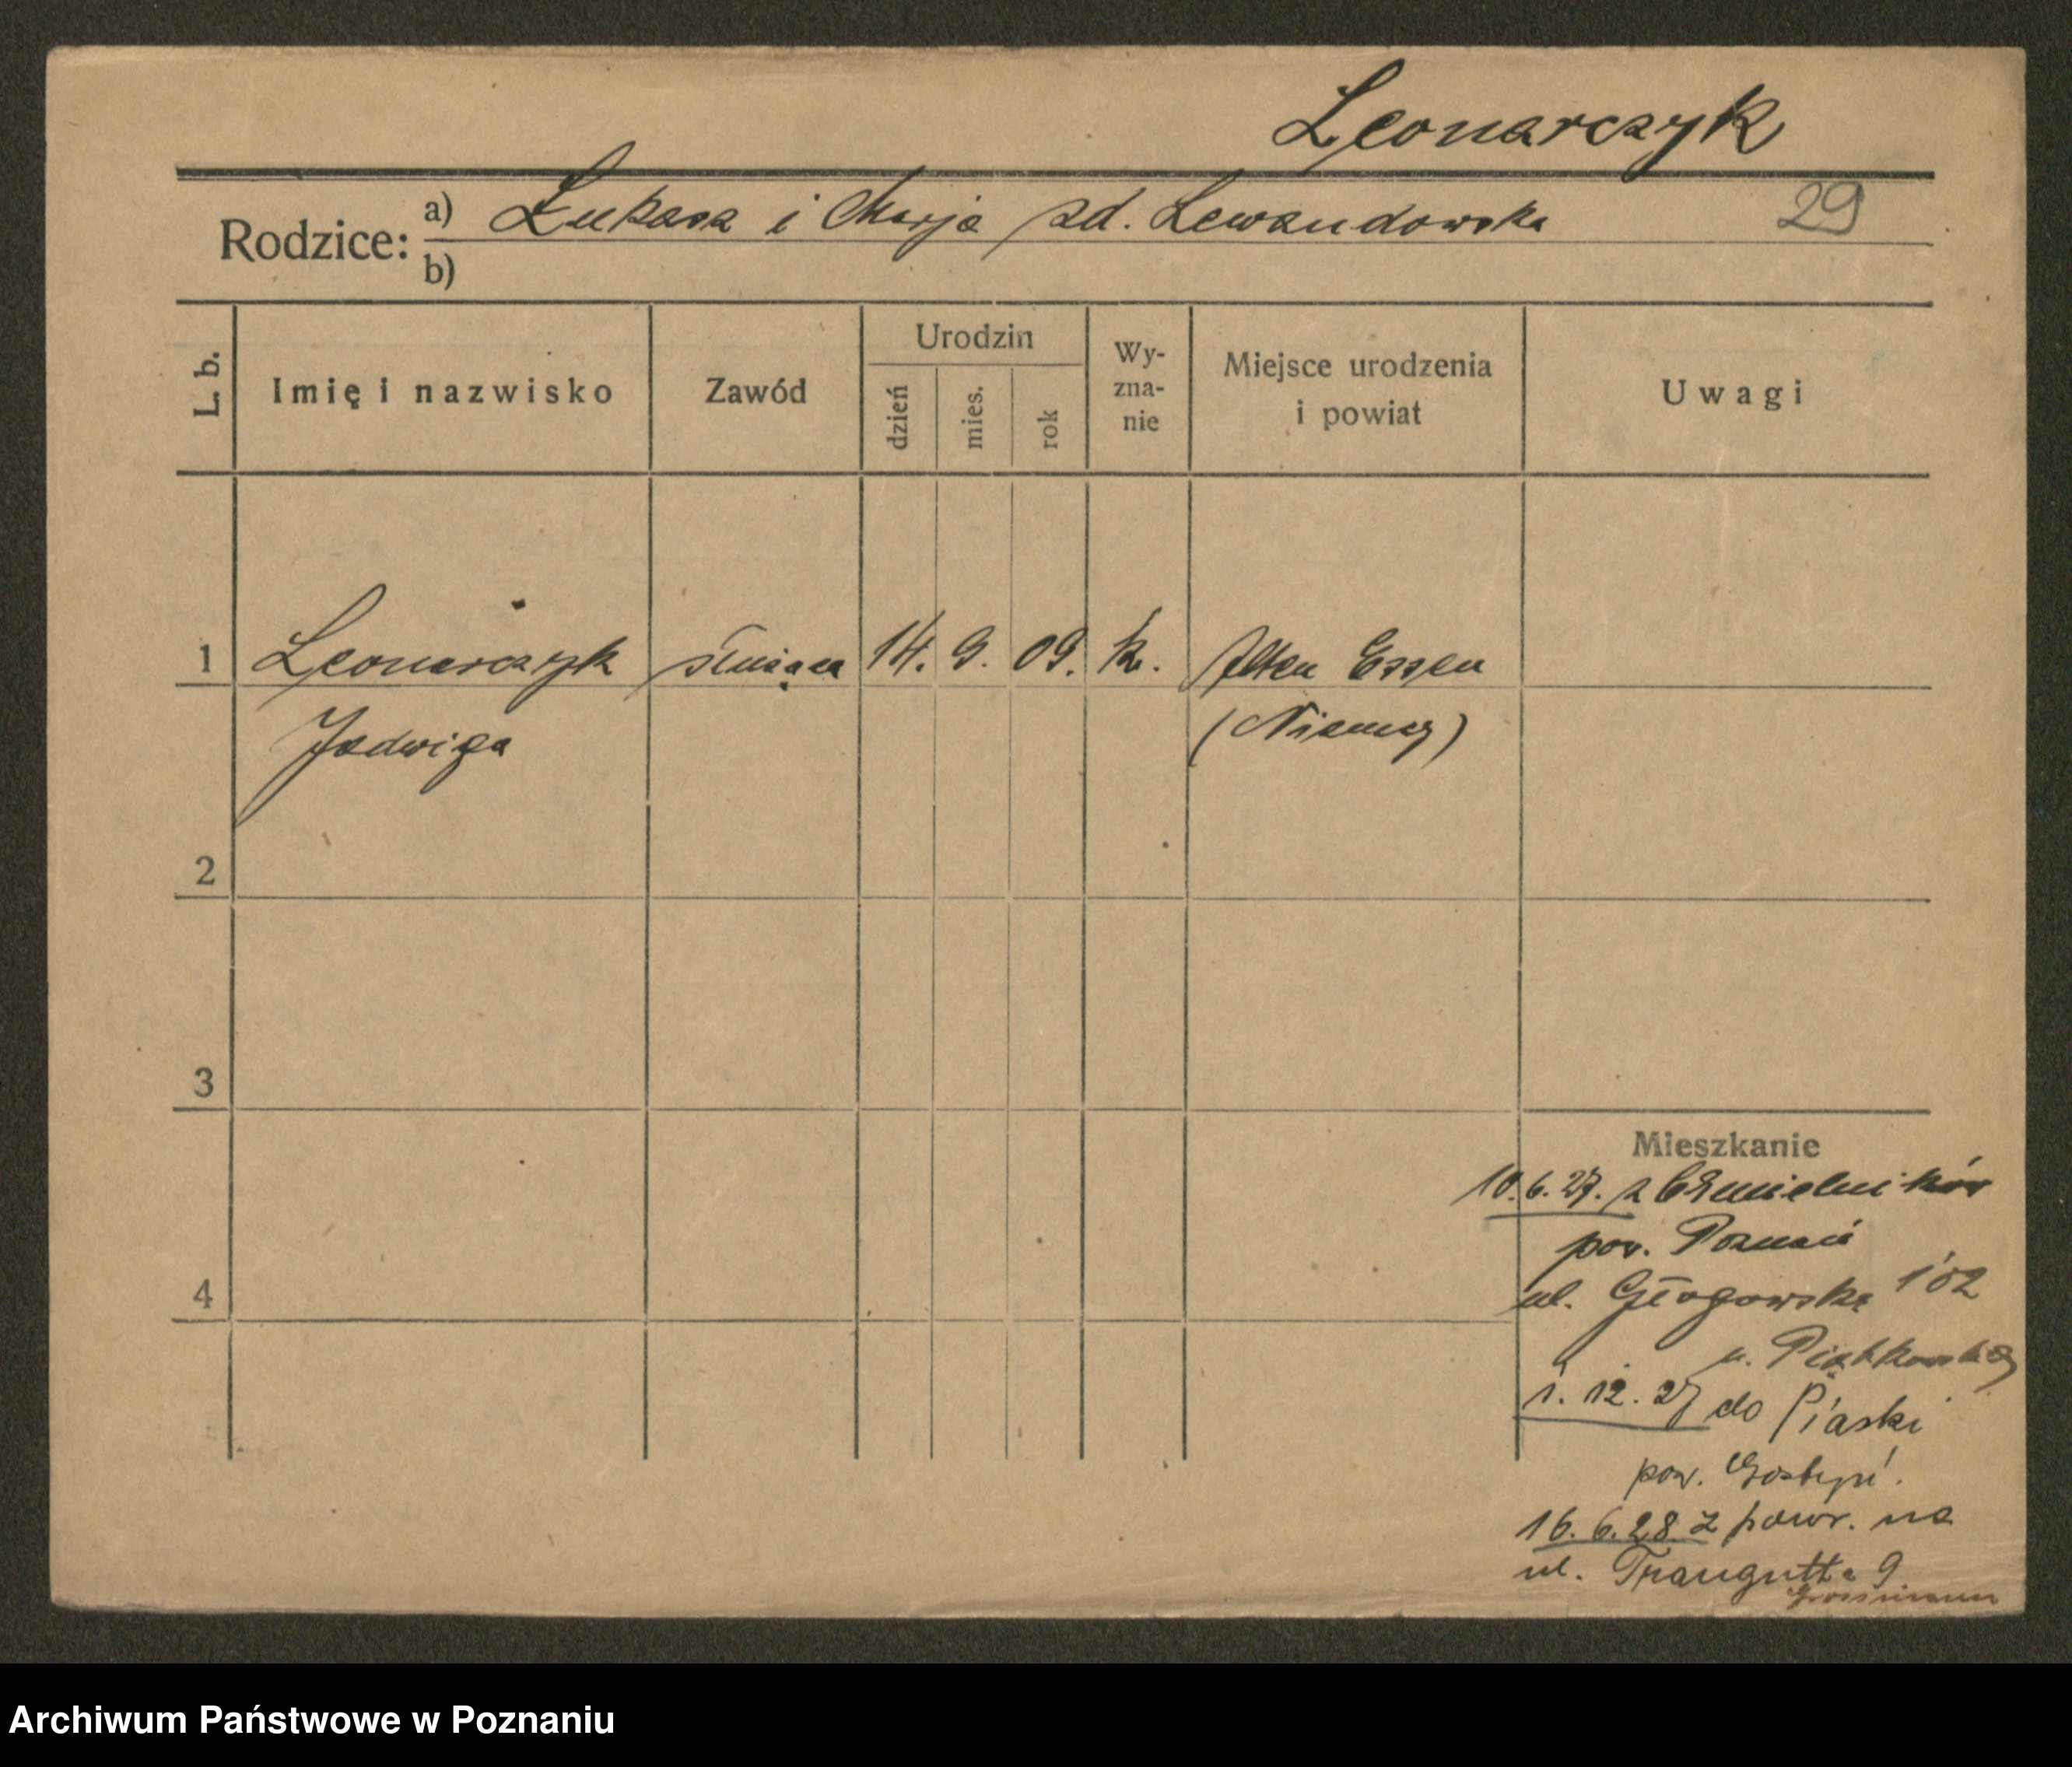 Leonarczyk
Rodzice: a) Łukasz i Marja zd. Lewandowska 29
b)
L. b. Imię i nazwisko Zawód Urodzin dzień mies. rok Wy-zna-nie Miejsce urodzenia i powiat Uwagi
1 Leonarczyk służąca 14. 9. 09. k. Alten Essen
Jadwiga (Niemcy)
2
3
Mieszkanie
10.6.27. z Chmielników
pow. Poznań
4
ul. Głogowska 102
u. Piątkowskiej
1. 12. 27 do Piaski
pow. Gostyń.
16. 6. 28 z powr. na
ul. Traugutta 9
Grossmann
Archiwum Państwowe w Poznaniu